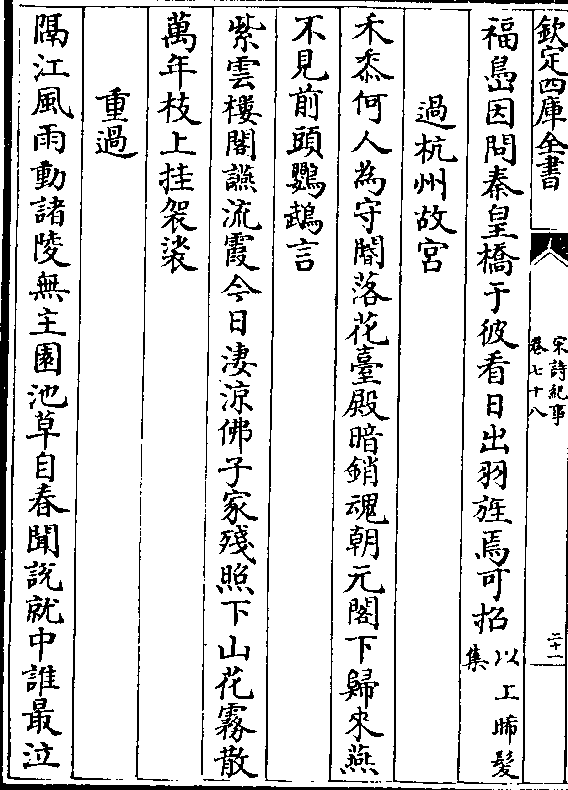 欽定四庫全書
宋詩紀事
卷七十八
二十一
福島因問秦皇橋于彼看日出羽旌焉可招以上晞髮
集
過杭州故宮
禾黍何人為守閽落花臺殿暗銷魂朝元閣下歸來燕
不見前頭鸚鵡言
紫雲樓閣讌流霞今日淒涼佛子家殘照下山花霧散
萬年枝上挂袈裟
重過
隔江風雨動諸陵無主園池草自春聞說就中誰最泣